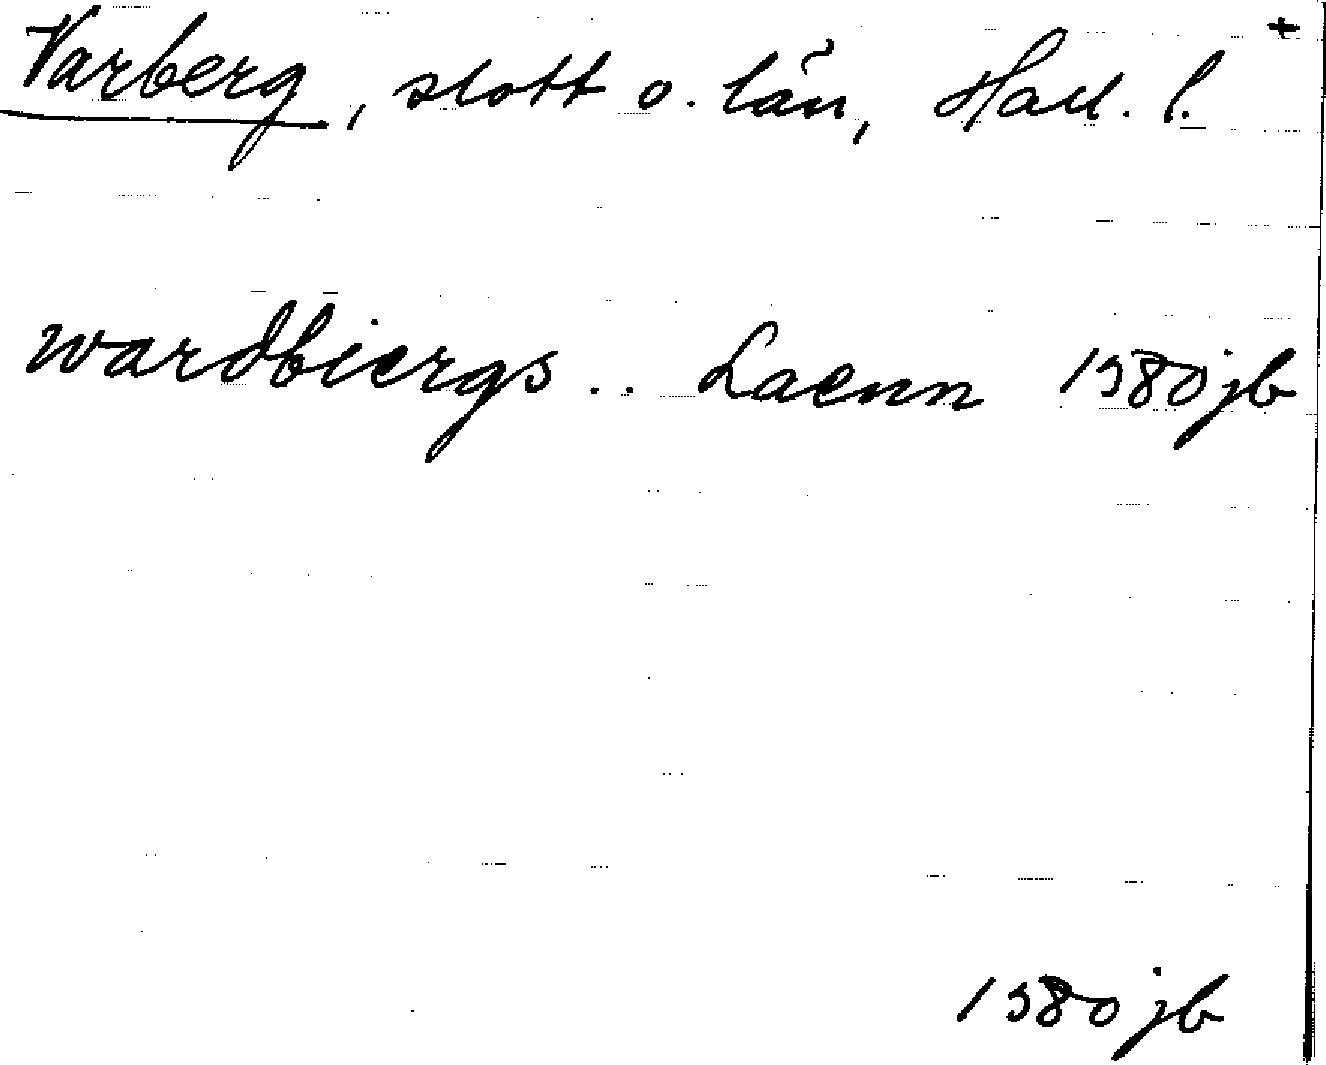 Varberg, slott o. län, Hall. l. +
wardbiergs .. Laenn 1580 jb
1580 jb